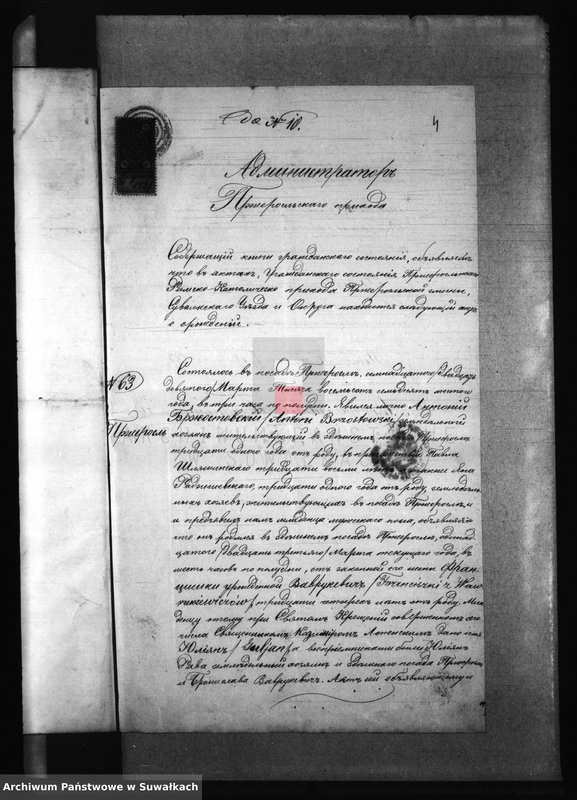 № 10.
4
Администраторъ
Пржеросльскаго прихода
Содержащій книги гражданскаго состоянія, объявляетъ
что въ актахъ, гражданскаго состоянія Пржеросльскаго
Римско-Католическо прихода Пржеросльской гмины,
Сувалкскаго Уѣзда и Округа находится слѣдующій актъ
о рожденіи.
№ 63
Пржеросль
Состоялось въ посадѣ Пржеросль, семнадцатого / двадцать
девятого / Марта Тысяча восемьсотъ семьдесятъ
года, въ три часа по полудни. Явился лично Антоній
Бржостовскій / Antoni Brzostowicki /
хозяинъ жительствующій въ здѣшнемъ посадѣ Пржеросль
тридцати одного года отъ роду, въ присутствіи Павла
тридцати восьми лѣтъ
тридцати одного года отъ роду,
хозяевъ, жительствующихъ въ посадѣ Пржеросль
и предъявилъ намъ младенца мужескаго пола, объявляя
что онъ родился въ здѣшнемъ посадѣ Пржеросль,
/ двадцать третьяго / Марта текущаго года, въ
шесть часовъ по полудни, отъ законной его жены Фран-
цишки урожденной Ваврукевичъ / Franciszki z Waw-
rukiewiczów / тридцати четырехъ лѣтъ отъ роду. Мла-
денцу этому при Святомъ Крещеніи совершенномъ сего
числа Священникомъ Казиміромъ дано имя
Юліянъ / Juljan / а воспріемниками были Юліянъ
Кава хозяинъ здѣшняго посада Пржеросль
и Бронислава Ваврукевичъ. Актъ сей объявляющему и
Archiwum Państwowe w Suwałkach